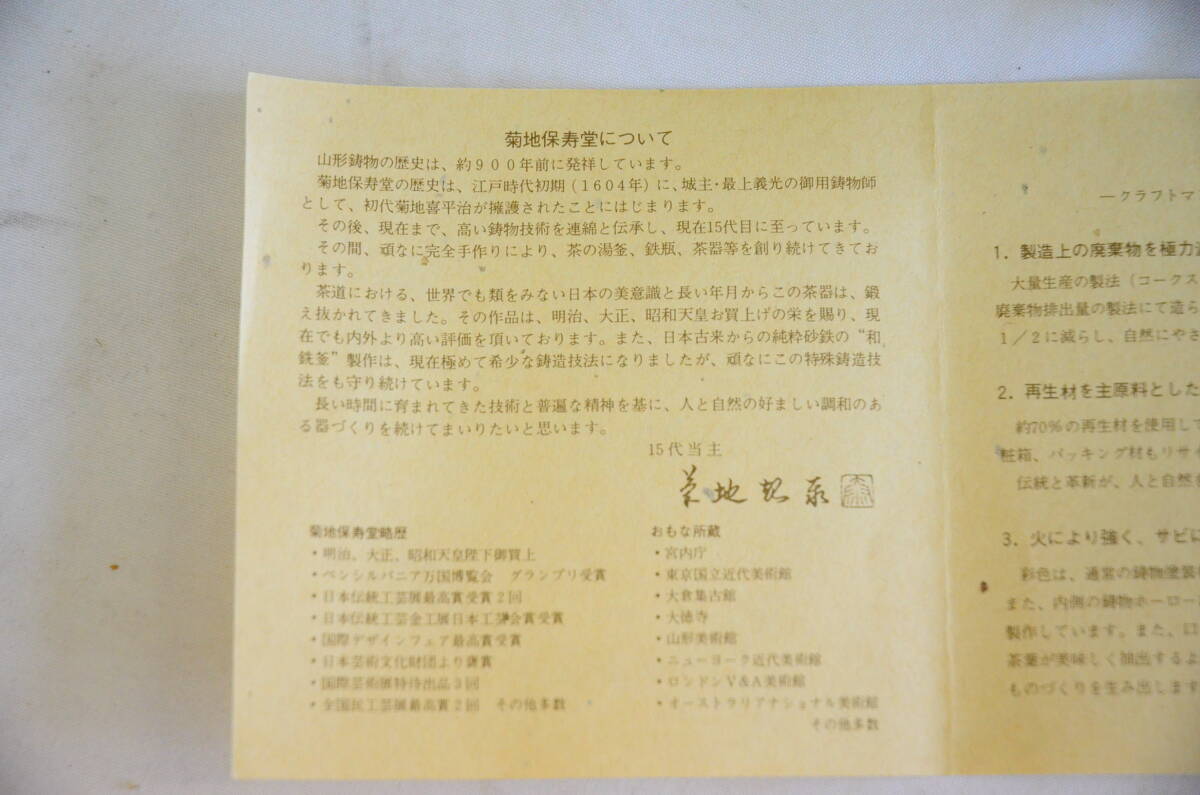 菊地保寿堂について
山形鋳物の歴史は、約９００年前に発祥しています。
菊地保寿堂の歴史は、江戸時代初期（１６０４年）に、城主・最上義光の御用鋳物師
として、初代菊地喜平治が擁護されたことにはじまります。
その後、現在まで、高い鋳物技術を連綿と伝承し、現在15代目に至っています。
その間、頑なに完全手作りにより、茶の湯釜、鉄瓶、茶器等を創り続けてきてお
ります。
茶道における、世界でも類をみない日本の美意識と長い年月からこの茶器は、鍛
え抜かれてきました。その作品は、明治、大正、昭和天皇お買上げの栄を賜り、現
在でも内外より高い評価を頂いております。また、日本古来からの純粋砂鉄の“和
銑釜”製作は、現在極めて希少な鋳造技法になりましたが、頑なにこの特殊鋳造技
法をも守り続けています。
長い時間に育まれてきた技術と普遍な精神を基に、人と自然の好ましい調和のあ
る器づくりを続けてまいりたいと思います。
15代当主
菊地保寿堂略歴
・明治、大正、昭和天皇陛下御買上
・ペンシルバニア万国博覧会　グランプリ受賞
・日本伝統工芸展最高賞受賞２回
・日本伝統工芸金工展日本工芸会賞受賞
・国際デザインフェア最高賞受賞
・日本芸術文化財団より褒賞
・国際芸術展特待出品３回
・全国民工芸展最高賞２回　その他多数
おもな所蔵
・宮内庁
・東京国立近代美術館
・大倉集古館
・大徳寺
・山形美術館
・ニューヨーク近代美術館
・ロンドンＶ＆Ａ美術館
・オーストラリアナショナル美術館
その他多数
―クラフトマ
1．製造上の廃棄物を極力
大量生産の製法（コークス
廃棄物排出量の製法にて造ら
１／２に減らし、自然にやさ
2．再生材を主原料とした
約70％の再生材を使用して
粧箱、パッキング材もリサイ
伝統と革新が、人と自然
3．火により強く、サビに
彩色は、通常の鋳物塗装
また、内側の鋳物ホーロー
製作しています。また、口
茶葉が美味しく抽出するよ
ものづくりを生み出します